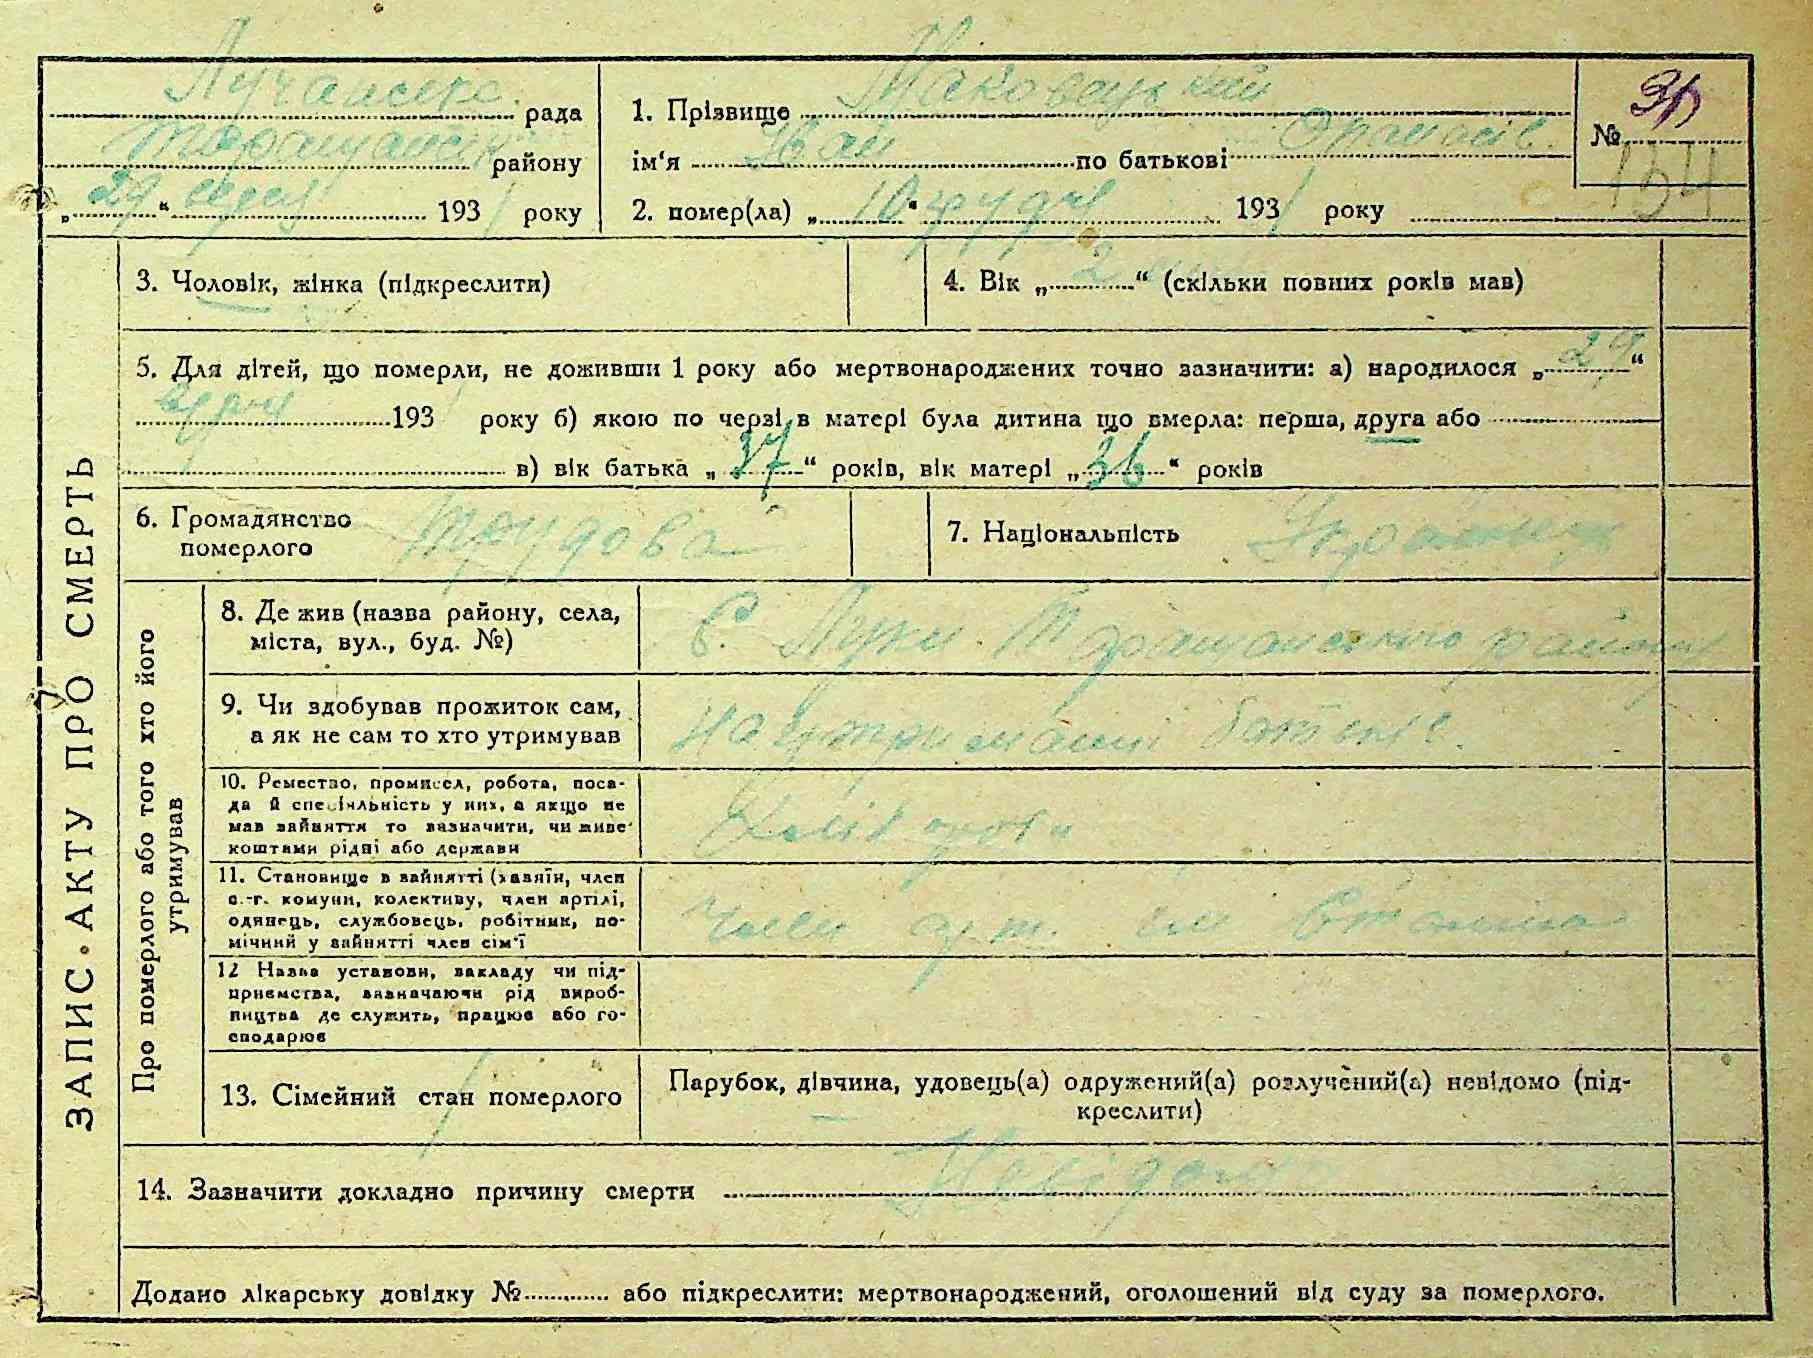 Лучанське рада
Таращанськ району
„29“ 193 року
1. Прізвище Маковецький
ім‘я Іван по батькові
2. помер(ла) „10“ грудня 1931 року
№
154
ЗАПИС АКТУ ПРО СМЕРТЬ
3. Чоловік, жінка (підкреслити)
4. Вік „2“ (скільки повних років мав)
5. Для дітей, що померли, не доживши 1 року або мертвонароджених точно зазначити: а) народилося „29“
193 року б) якою по черзі в матері була дитина що вмерла: перша, друга або
в) вік батька „37“ років, вік матері „36“ років
6. Громадянство
померлого
Трудова
7. Національність Украинец
Про померлого або того хто його
утримував
8. Де жив (назва району, села,
міста, вул., буд. №)
С. Луки Таращанського району
9. Чи здобував прожиток сам,
а як не сам то хто утримував
На утриманні батьків.
10. Ремество, промисел, робота, поса-
да й спеціяльність у них, а якщо не
мав зайняття то зазначити, чи живе
коштами рідні або держави
Хлібороби
11. Становище в зайнятті (хазяїн, член
с.-г. комуни, колективу, член артілі,
одинець, службовець, робітник, по-
мічний у зайнятті член сім‘ї
Член арт. ім Сталіна
12 Назва установи, закладу чи під-
приємства, зазначаючи рід вироб-
ництва де служить, працює або го-
сподарює
13. Сімейний стан померлого
Парубок, дівчина, удовець(а) одружений(а) розлучений(а) невідомо (під-
креслити)
14. Зазначити докладно причину смерти Невідома
Додано лікарську довідку № або підкреслити: мертвонароджений, оголошений від суду за померлого.